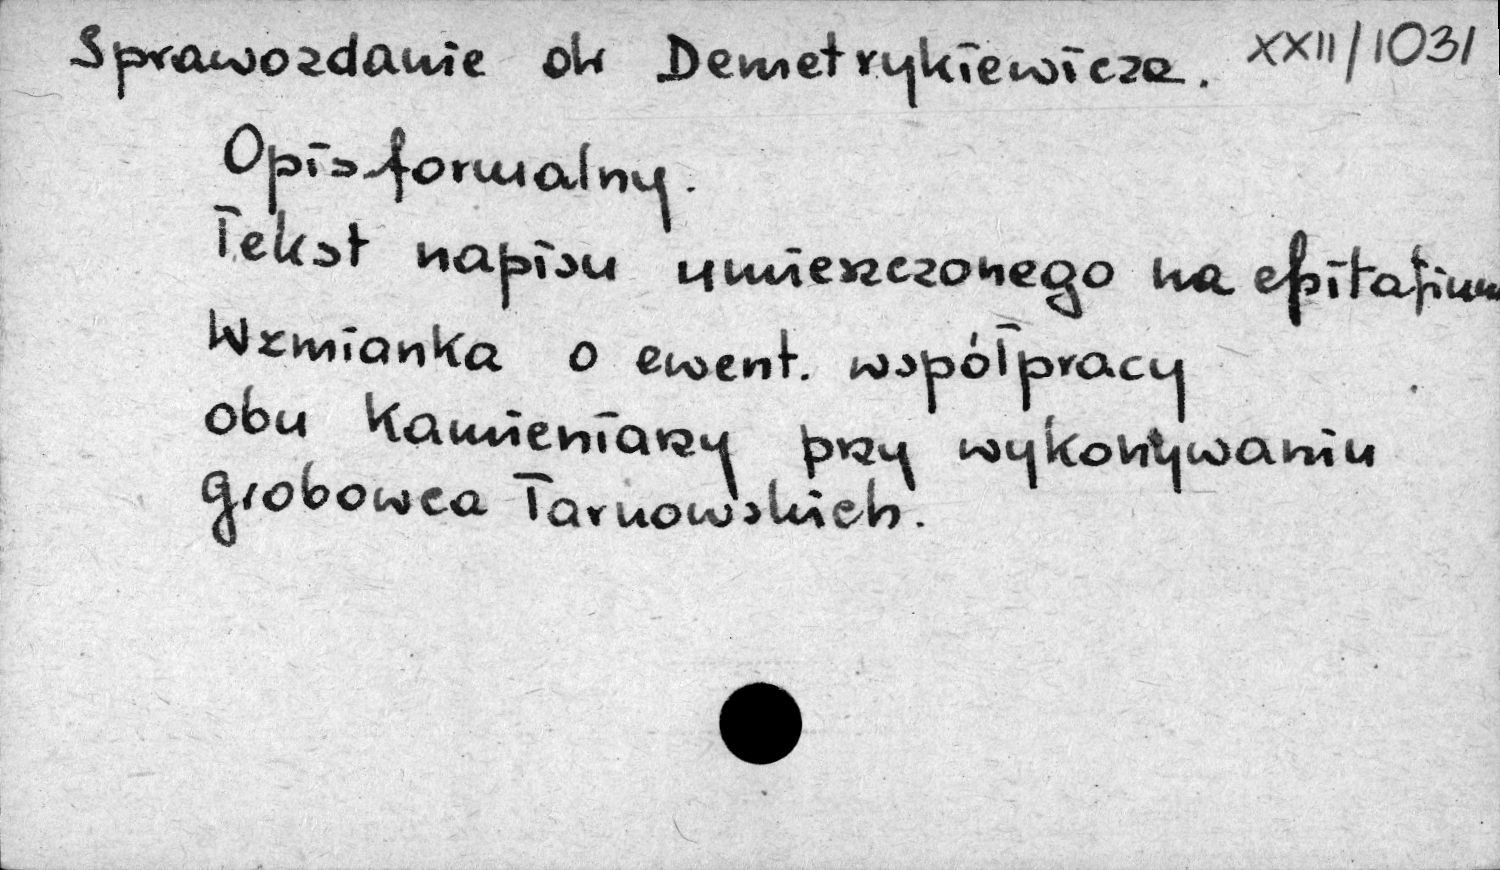 Sprawozdanie dr Demetrykiewicza. XXII/1031
Opis formalny.
Tekst napisu umieszczonego na epitafium
Wzmianka o ewent. współpracy
obu kamieniarzy przy wykonywaniu
grobowca Tarnowskich.